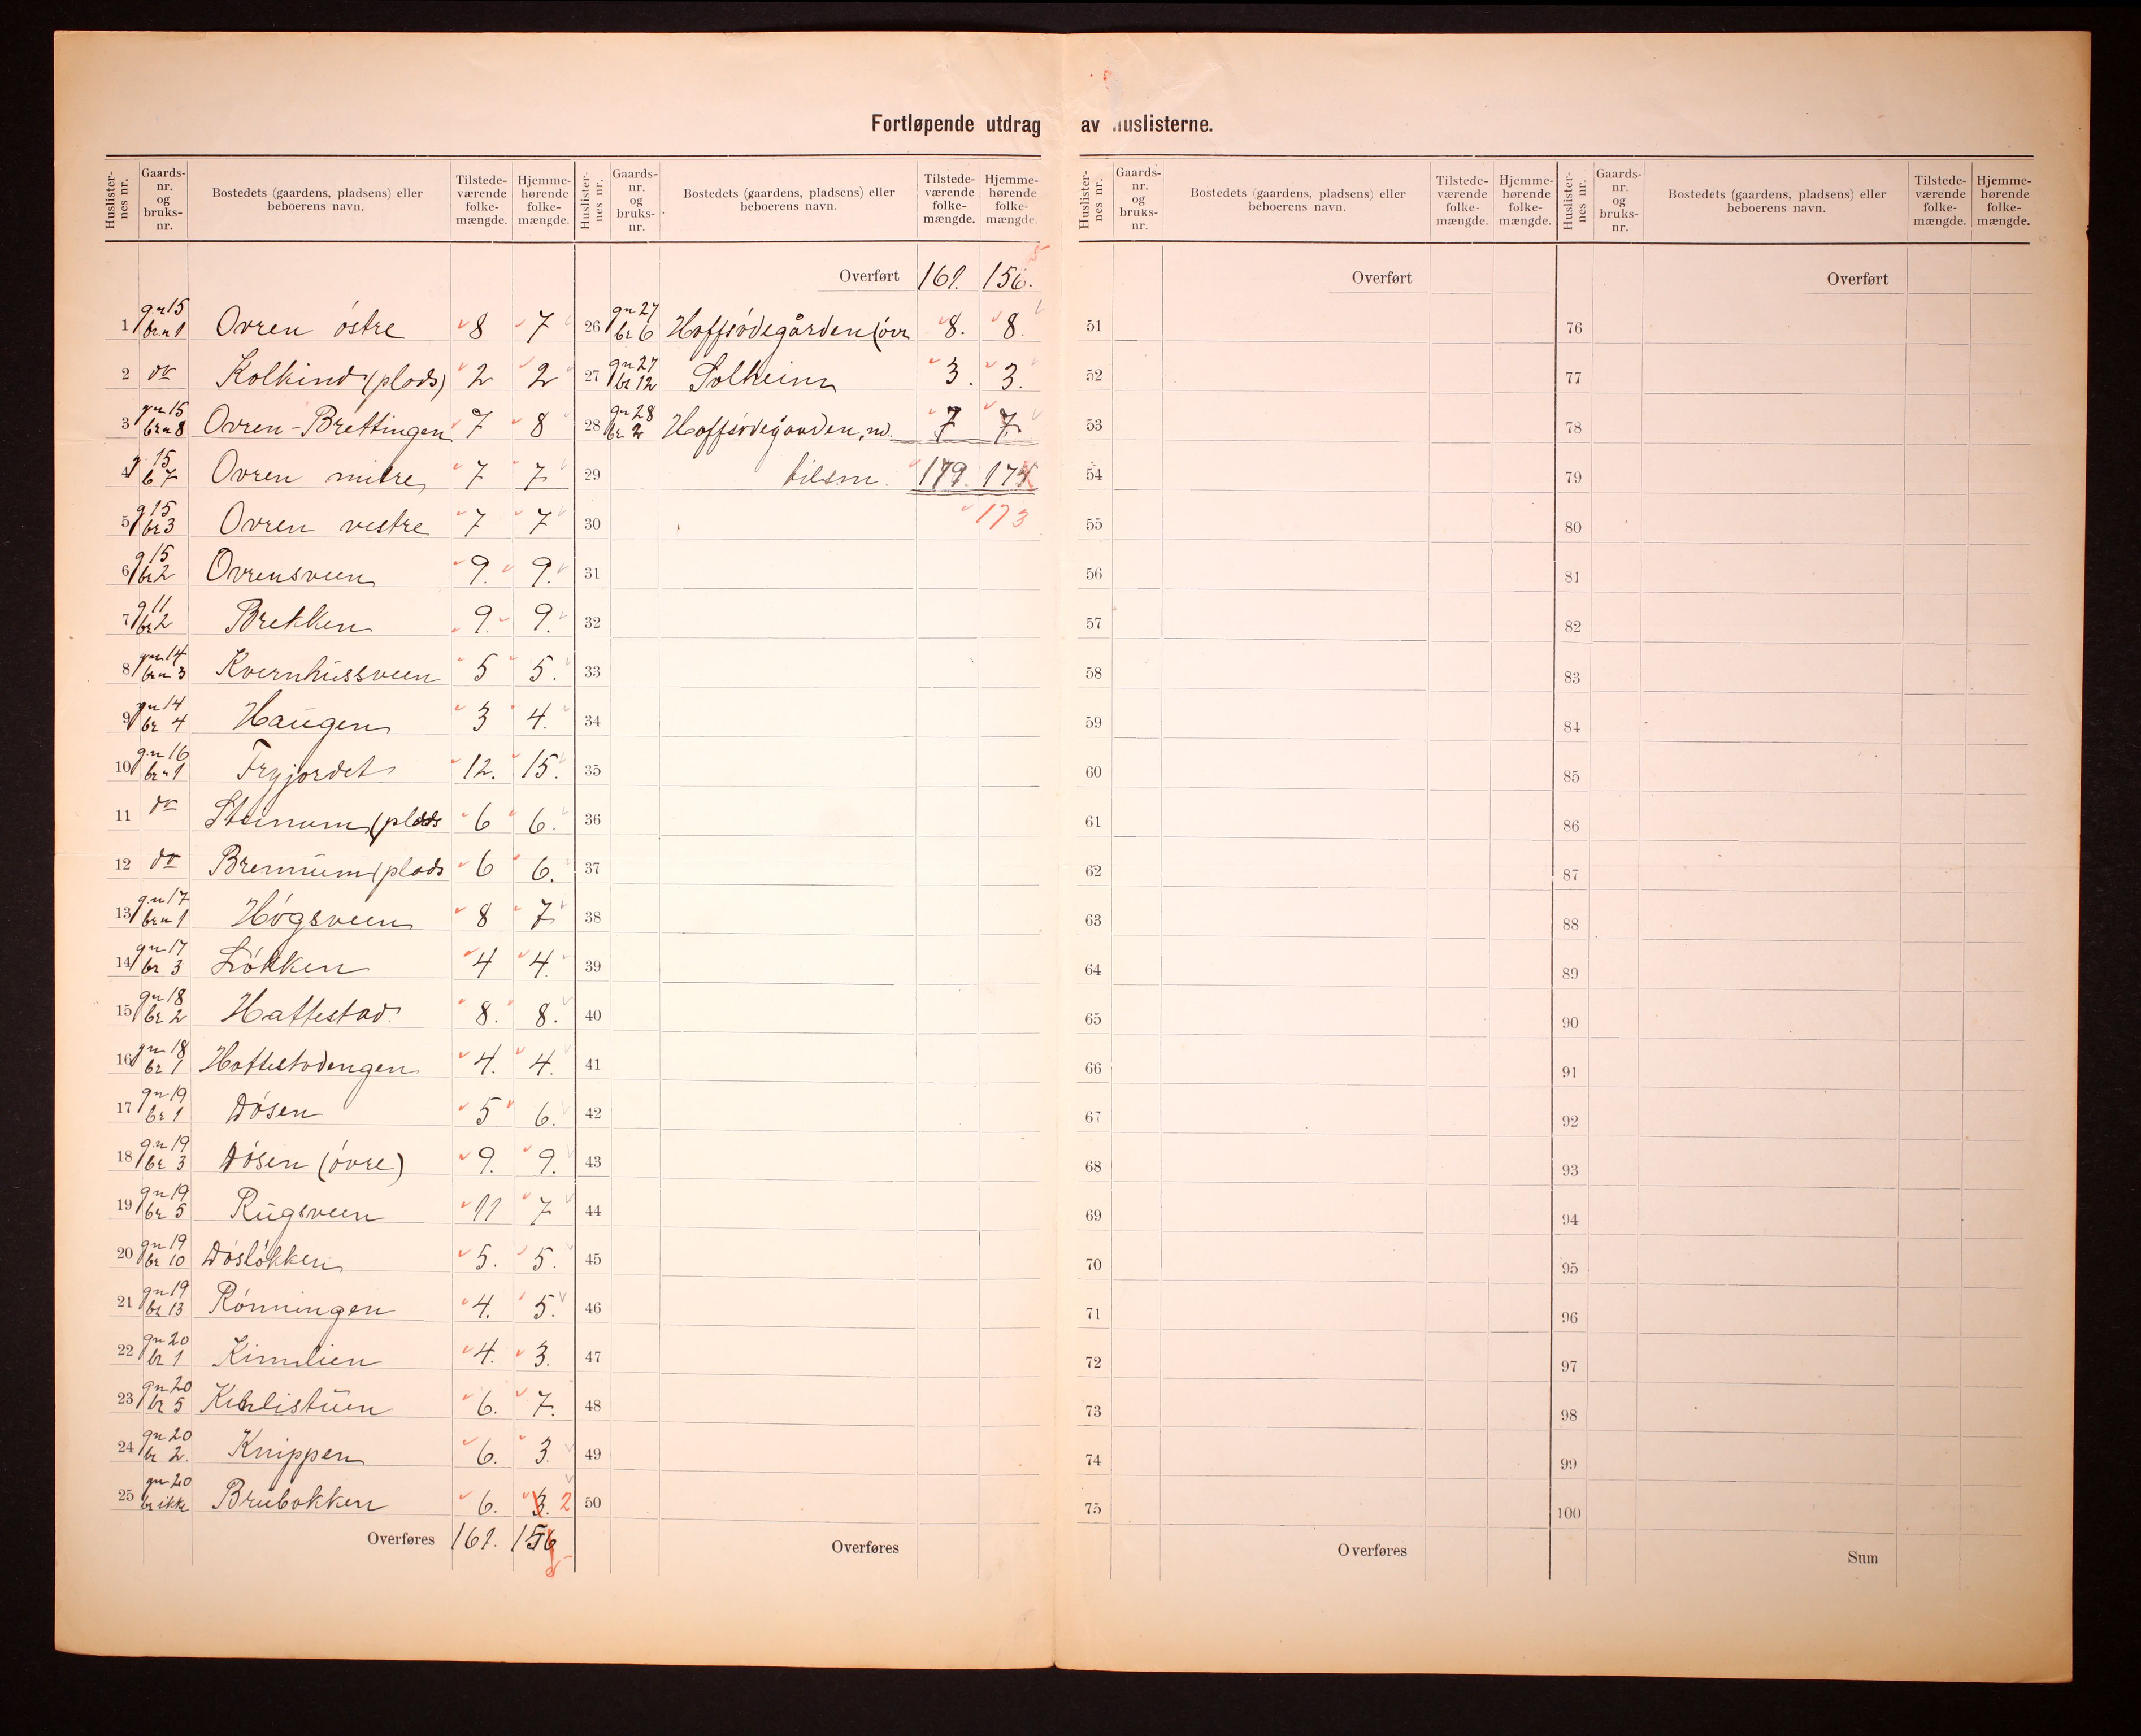 Fortløpende utdrag av huslisterne.
Huslister-nes nr. Gaards-nr. og bruks-nr. Bostedets (gaardens, pladsens) eller beboerens navn. Tilstede-værende folke-mængde. Hjemme-hørende folke-mængde.
1 gn 15 brn 1 Ovren östre 8 7
2 do Kolkind (plads) 2 2
3 gn 15 brn 8 Ovren-Brettingen 7 8
4 g 15 b 7 Ovren mitre 7 7
5 g 15 br 3 Ovren vestre 7 7
6 g 15 br 2 Ovrensveen 9. 9.
7 g 11 br 2 Brekken 9. 9.
8 gn 14 brn 3 Kvernhussveen 5 5.
9 gn 14 br 4 Haugen 3 4.
10 gn 16 brn 1 Frygjordet 12. 15.
11 do Stenum (plads 6 6.
12 do Brennum (plads 6 6.
13 gn 17 brn 1 Högsveen 8 7
14 gn 17 br 3 Lökken 4 4.
15 gn 18 br 2 Hattestad 8. 8.
16 gn 18 br 1 Hattestadengen 4. 4.
17 gn 19 br 1 Dösen 5 6.
18 gn 19 br 3 Dösen (övre) 9. 9.
19 gn 19 br 5 Rugsveen 11 7
20 gn 19 br 10 Döslökken 5. 5.
21 gn 19 br 13 Rönningen 4. 5.
22 gn 20 br 1 Kinnlien 4. 3.
23 gn 20 br 5 6. 7.
24 gn 20 br 2. Knippen 6. 3.
25 gn 20 br ikke Brubakken 6. 3. 2
Overføres 161. 156 5
Huslister-nes nr. Gaards-nr. og bruks-nr. Bostedets (gaardens, pladsens) eller beboerens navn. Tilstede-værende folke-mængde. Hjemme-hørende folke-mængde.
Overført 161. 156. 5
26 gn 27 br 6 Hoffsödegården (övr 8. 8.
27 gn 27 br 12 Solheim 3. 3.
28 gn 28 br 2 Hoffsödegaarden, nd. 7 7.
29 tilsm. 179. 174
30 173
31
32
33
34
35
36
37
38
39
40
41
42
43
44
45
46
47
48
49
50
Overføres
Huslister-nes nr. Gaards-nr. og bruks-nr. Bostedets (gaardens, pladsens) eller beboerens navn. Tilstede-værende folke-mængde. Hjemme-hørende folke-mængde.
Overført
51
52
53
54
55
56
57
58
59
60
61
62
63
64
65
66
67
68
69
70
71
72
73
74
75
Overføres
Huslister-nes nr. Gaards-nr. og bruks-nr. Bostedets (gaardens, pladsens) eller beboerens navn. Tilstede-værende folke-mængde. Hjemme-hørende folke-mængde.
Overført
76
77
78
79
80
81
82
83
84
85
86
87
88
89
90
91
92
93
94
95
96
97
98
99
100
Sum